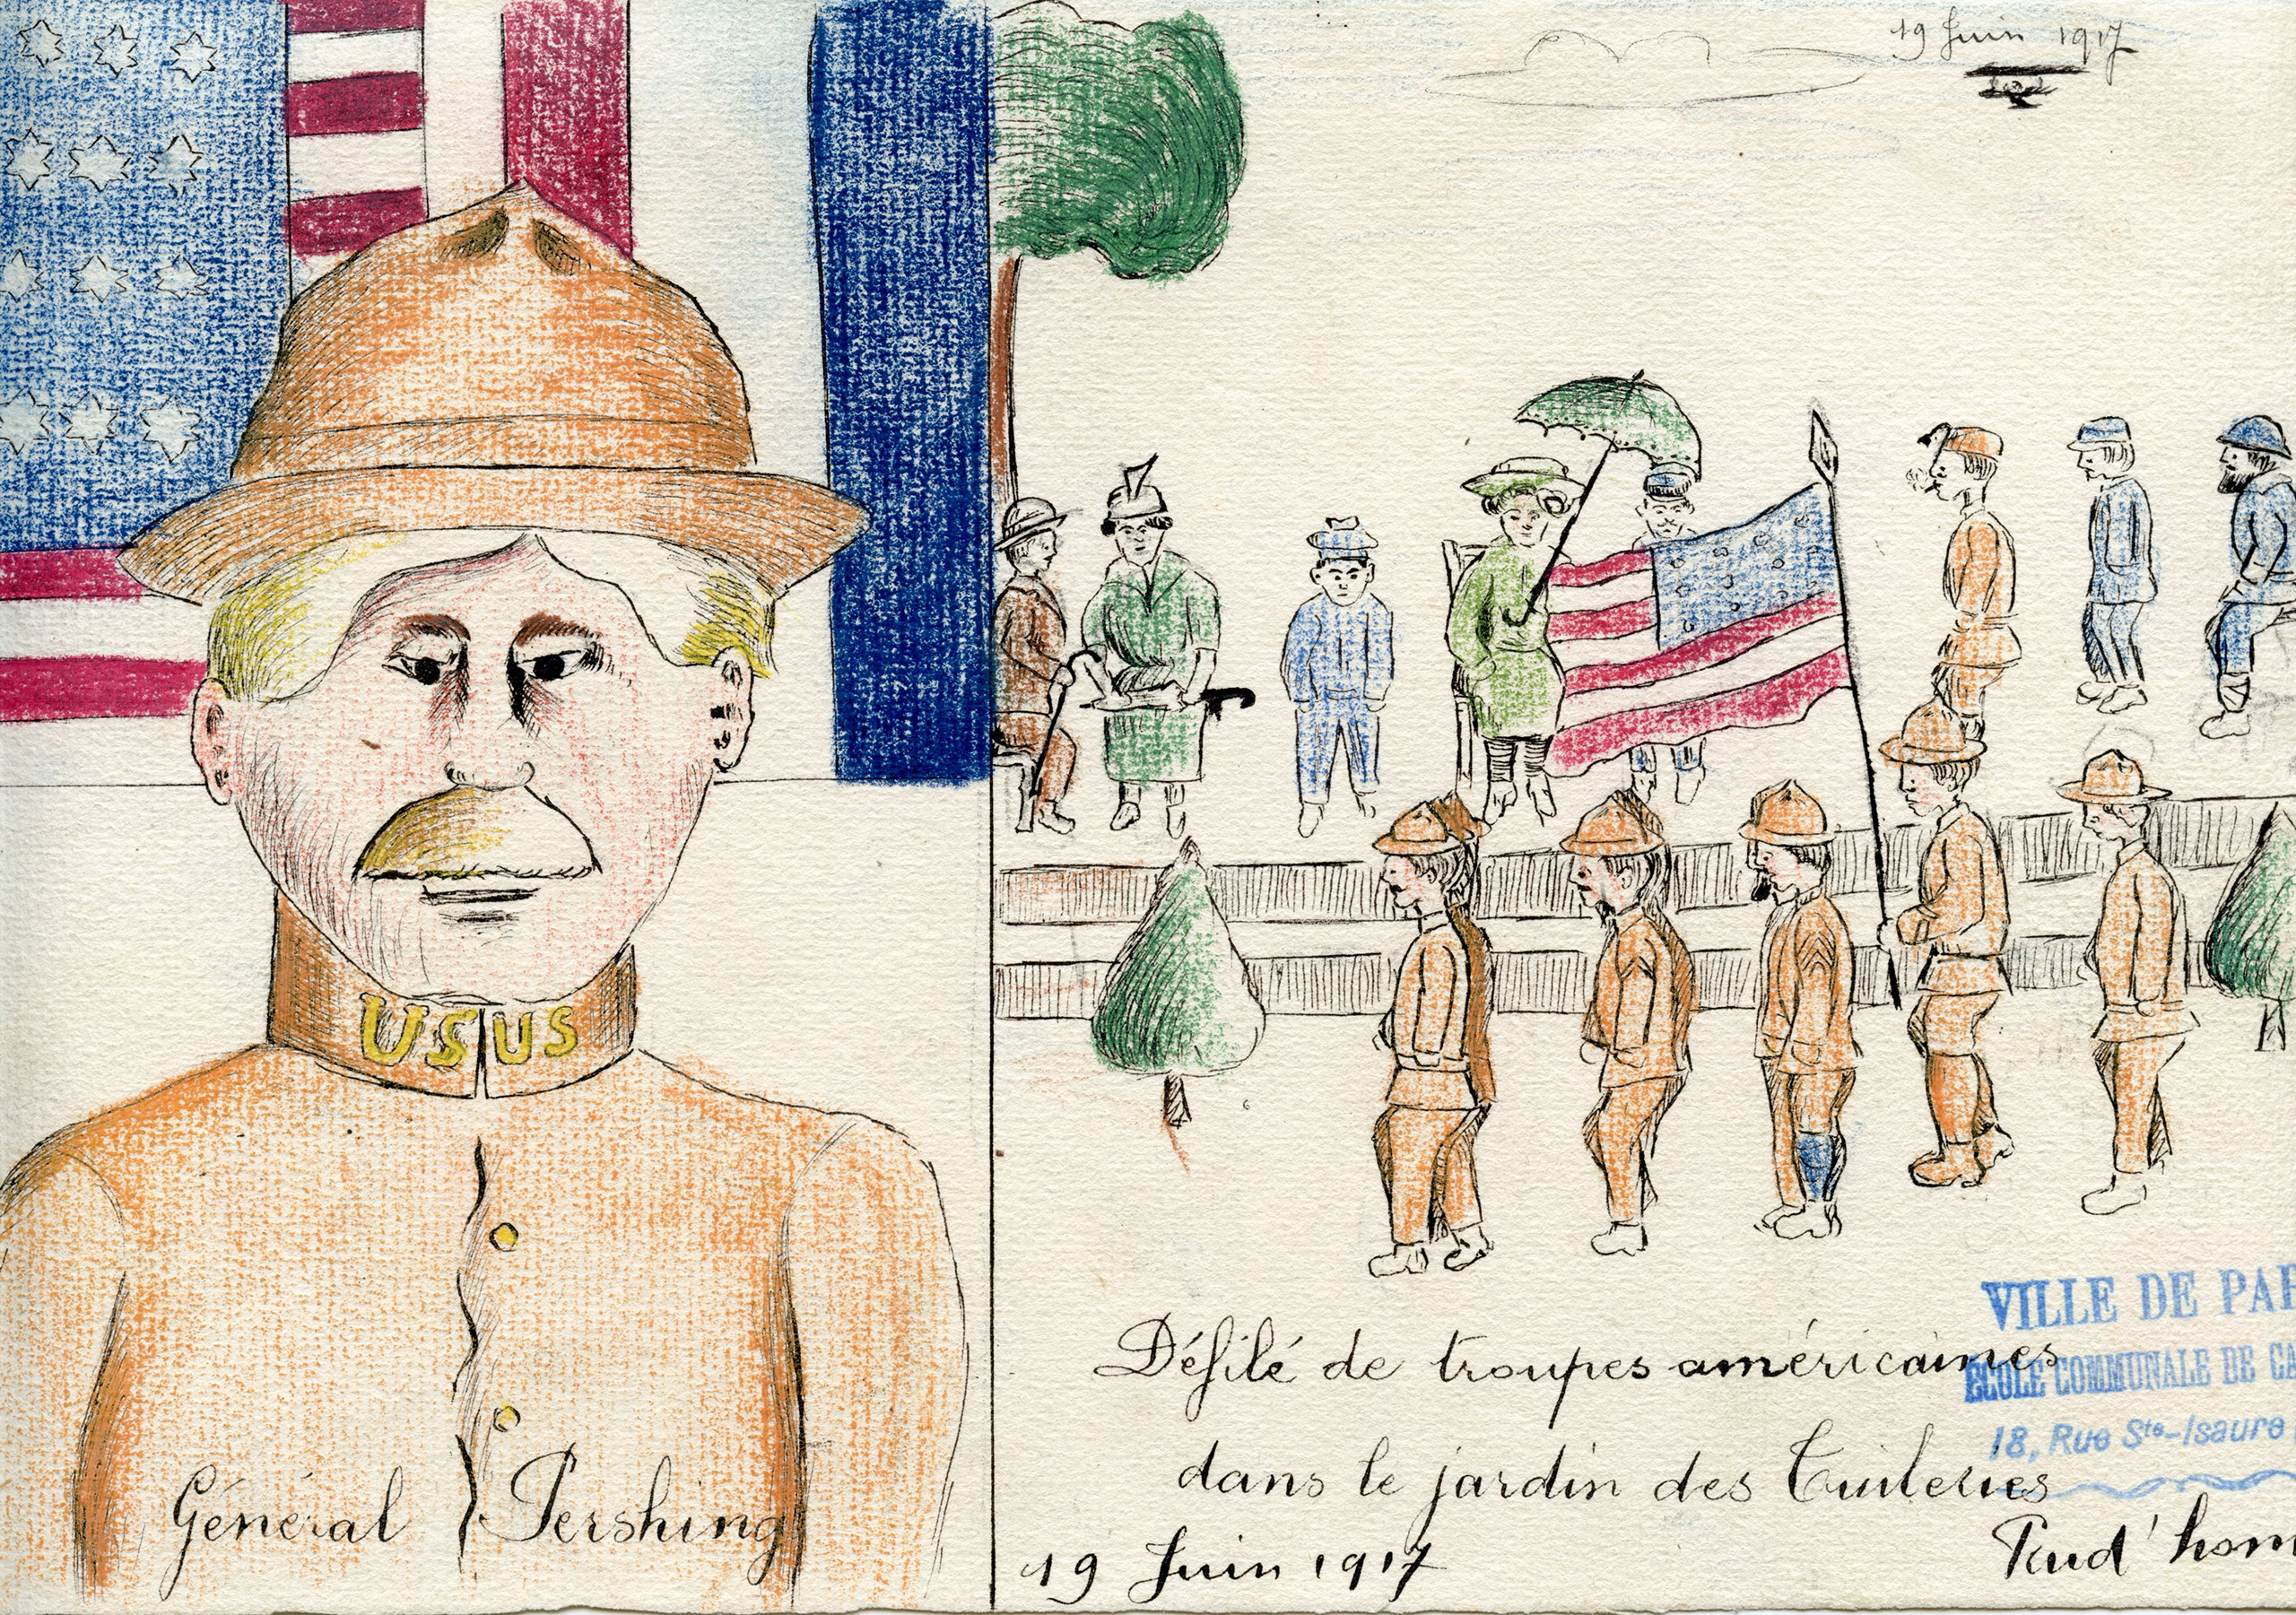 19 Juin 1917
US US
Général Pershing
Défilé de troupes américaines
dans le jardin des Tuileries
19 Juin 1917
VILLE DE PAR
ÉCOLE COMMUNALE DE GA
18, Rue Ste-Isaure
Prud'hom